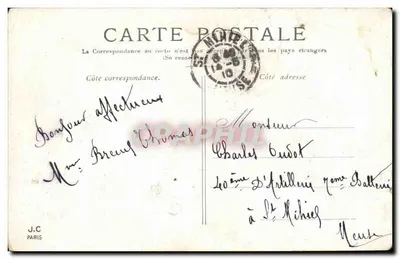 CARTE POSTALE
La Correspondance au recto n'est pas les pays étrangers
Côté correspondance.
Côté adresse
14 -5
10
MEUSE
Bonjour affectueux
Mme Breuil Thomas
Monsieur
Charles Oudot
40ème D'Artillerie 7ème Batterie
à St Mihiel
Meuse
J.C
PARIS